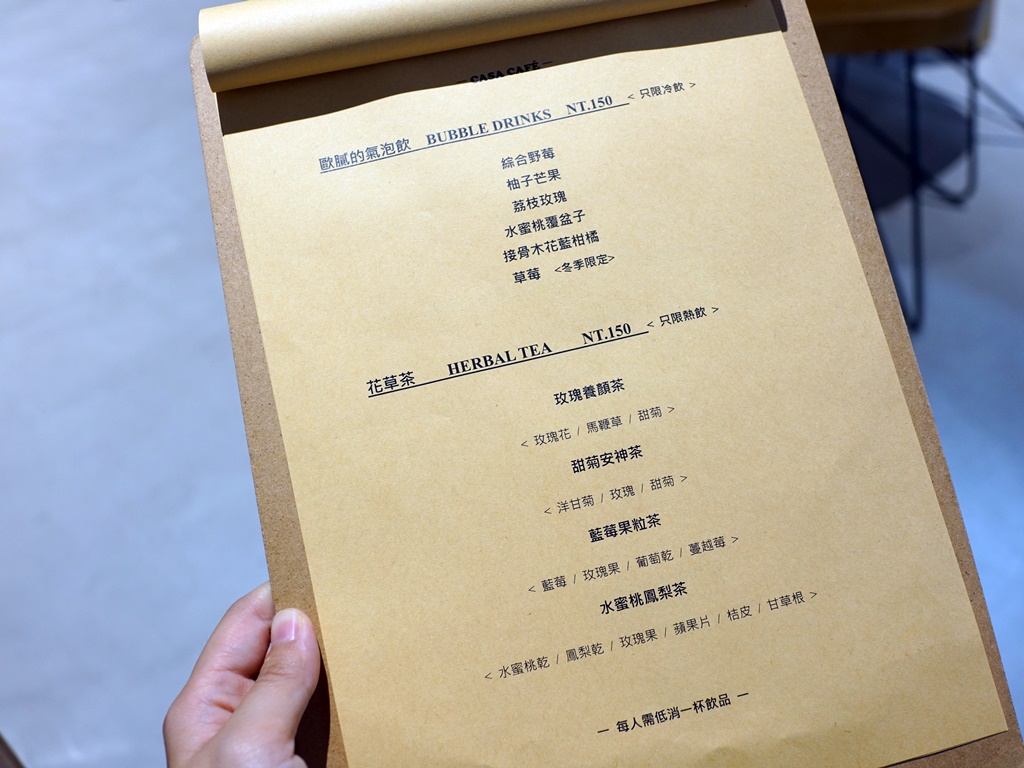 — CASA CAFÉ —
歐膩的氣泡飲 BUBBLE DRINKS NT.150 < 只限冷飲 >
綜合野莓
柚子芒果
荔枝玫瑰
水蜜桃覆盆子
接骨木花藍柑橘
草莓 <冬季限定>
花草茶 HERBAL TEA NT.150 < 只限熱飲 >
玫瑰養顏茶
< 玫瑰花 / 馬鞭草 / 甜菊 >
甜菊安神茶
< 洋甘菊 / 玫瑰 / 甜菊 >
藍莓果粒茶
< 藍莓 / 玫瑰果 / 葡萄乾 / 蔓越莓 >
水蜜桃鳳梨茶
< 水蜜桃乾 / 鳳梨乾 / 玫瑰果 / 蘋果片 / 桔皮 / 甘草根 >
— 每人需低消一杯飲品 —